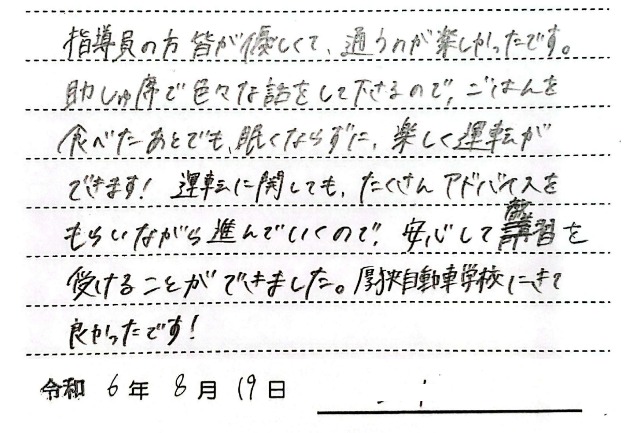 指導員の方 皆が優しくて、通うのが楽しかったです。
助しゅ席で色々な話をして下さるので、ごはんを
食べたあとでも、眠くならずに、楽しく運転が
できます! 運転に関しても、たくさんアドバイスを
もらいながら進んでいくので、安心して講習を
受けることができました。厚狭自動車学校にきて
良かったです!
令和 6年 8月 19日